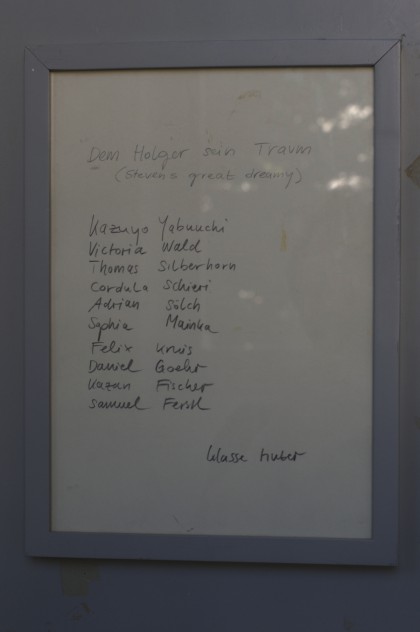 Dem Holger sein Traum
(Stevens great dreamy)
Kazuyo Yabuuchi
Victoria Wald
Thomas Silberhorn
Cordula Schieri
Adrian Sölch
Sophia Mainka
Felix Kruis
Daniel Goehr
Kazan Fischer
Samuel Ferstl
Klasse Huber